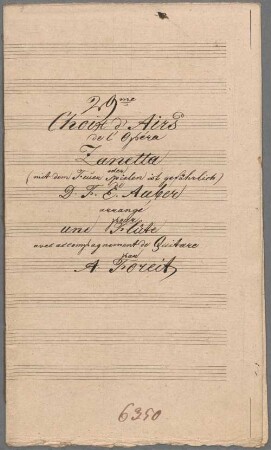 29me
Choix d'Airs
de l'Opéra
Zanetta
oder
(mit dem Feuer Spielen ist gefährlich)
de
D. F. E. Auber
arrangé
pour
une Flûte
avec accompagnement de Guitare
par
A Foreit
6350